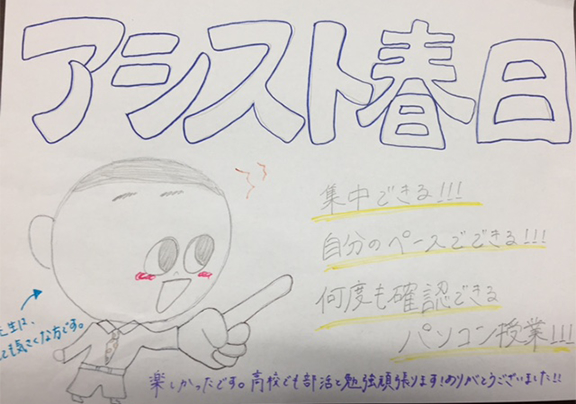 アシスト春日
集中できる!!!
自分のペースでできる!!!
何度も確認できる
パソコン授業!!!
先生は、
とても気さくな方です。
楽しかったです。高校でも部活と勉強頑張ります!ありがとうございました!!